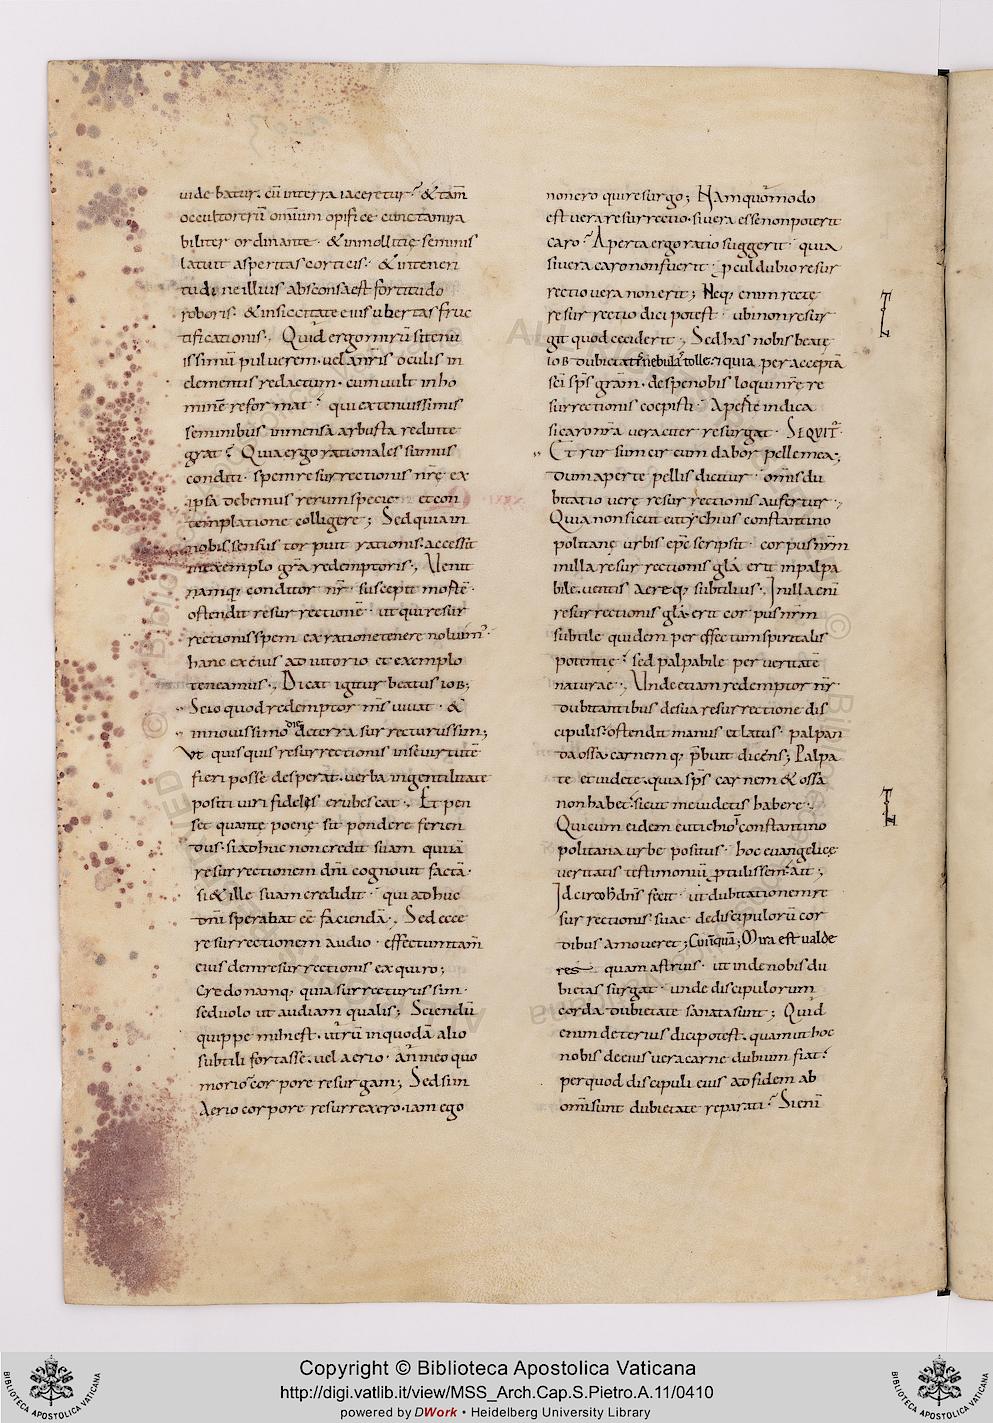 uidebatur. cū interra iaceretur? & tam̄
occultortrū omīum opifice cuncta mira
biliter ordinante. & inmollitię seminis
latuit asperitas corticis. & inteneri
tudine illius absconsa est fortitudo
roboris. & insiccitate eius ubertas fruc
tificationis. Quid ergo mirū si tenu
issimū puluerem. uel a nr̄is oculis in
elementis redactum. cum uult in ho
minē reformat? qui ex tenuissimis
seminibus inmensa arbusta redinte
grat? Quia ergo rationales sumus
conditi. spem resurrectionis nr̄ę ex
ipsa debemus rerum specie. et con
templatione colligere; Sed quia in
nobis sensus torpuit rationis. accessit
in exemplo gr̄a redemptoris., Uenit
namq; conditor nr̄. suscepit mortē.
ostendit resurrectionē. ut qui resur
rectionis spem ex ratione tenere noluim̄'.
hanc ex eius adiutorio et exemplo
teneamus., Dicat igitur beatus iob;
Scio quod redemptor m̄s uiuat. &
in nouissimo die de terra surrecturus sim;
Ut quisquis resurrectionis inse uirtutē
fieri posse desperat. uerba ingentilitate
positi uiri fidelis erubescat., Et pen
set quantę poenę sit pondere ferien
dus. si adhuc non credit suam qui iā
resurrectionem dn̄i cognouit factā.
si & ille suam credidit. qui adhuc
dn̄i sperabat eē faciendā., Sed ecce
resurrectionem audio. effectum tam̄
eiusdem resurrectionis exquiro;
Credo namq; quia surrecturus sim.
sed uolo ut audiam qualis; Sciendū
quippe mihi est. utrū in quodā alio
subtili fortasse. uel aerio. an̄ in eo quo
morior corpore resurgam; Sed si in
Aerio corpore resurrexero. iam ego
non ero qui resurgo; Nam quomodo
est uera resurrectio. si uera esse non poterit
caro? Aperta ergo ratio suggerit. quia
si uera caro non fuerit. p̱cul dubio resur
rectio uera non erit; Neq; enim recte
resurrectio dici potest. ubi non resur
git quod cecidit., Sed has nobis beatę
iob dubietatis nebulas tolle. & quia per acceptā
sc̄i sp̄s gr̄am. de spe nobis loqui nr̄ę re
surrectionis coepisti. Aperte indica
si caro nr̄a ueraciter resurgat. SEQUIT̄.
Et rursum circumdabor pelle mea.;
Dum aperte pellis dicitur. om̄is du
bitatio uerę resurrectionis aufertur.,
Quia non sicut eutychius constantino
politanę urbis ep̄c scripsit. corpus nr̄m
in illa resurrectionis gl̄a erit inpalpa
bile. uentis aereq; subtilius., In illa enī
resurrectionis gl̄a. erit corpus nr̄m
subtile quidem per effectum spiritalis
potentię? sed palpabile per ueritatē
naturae., Unde etiam redemptor nr̄.
dubitantibus de sua resurrectione dis
cipulis. ostendit manus et latus. palpan
da ossa. carnem q; p̄buit dicens; Palpa
te et uidete. quia sp̄s carnem & ossa
non habet. sicut me uidetis habere.,
Qui cum eidem eutichio constantino
politana urbe positus. hoc euangelicę
ueritatis testimoniū p̱tulissem. ait;
Idcirco h̄ dn̄s fecit. ut dubitationem re
surrectionis suae de discipulorū cor
dibus amoueret; Cui inquā; Mira est ualde
res quam astruis. ut inde nobis du
bietas surgat. unde discipulorum
corda dubietate sanata sunt; Quid
enim deterius dici potest. quam ut hoc
nobis de eius uera carne dubium fiat?
per quod discipuli eius ad fidem ab
om̄i sunt dubietate reparati? Si enī
Copyright © Biblioteca Apostolica Vaticana
http://digi.vatlib.it/view/MSS_Arch.Cap.S.Pietro.A.11/0410
powered by DWork • Heidelberg University Library
BIBLIOTECA APOSTOLICA VATICANA
BIBLIOTECA APOSTOLICA VATICANA